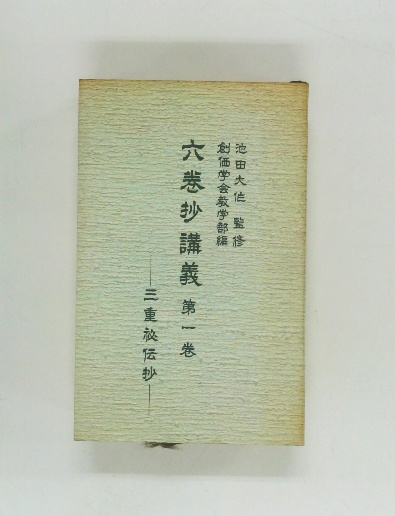 池田大作 監修
創価学会教学部編
六巻抄講義 第一巻
―三重秘伝抄―